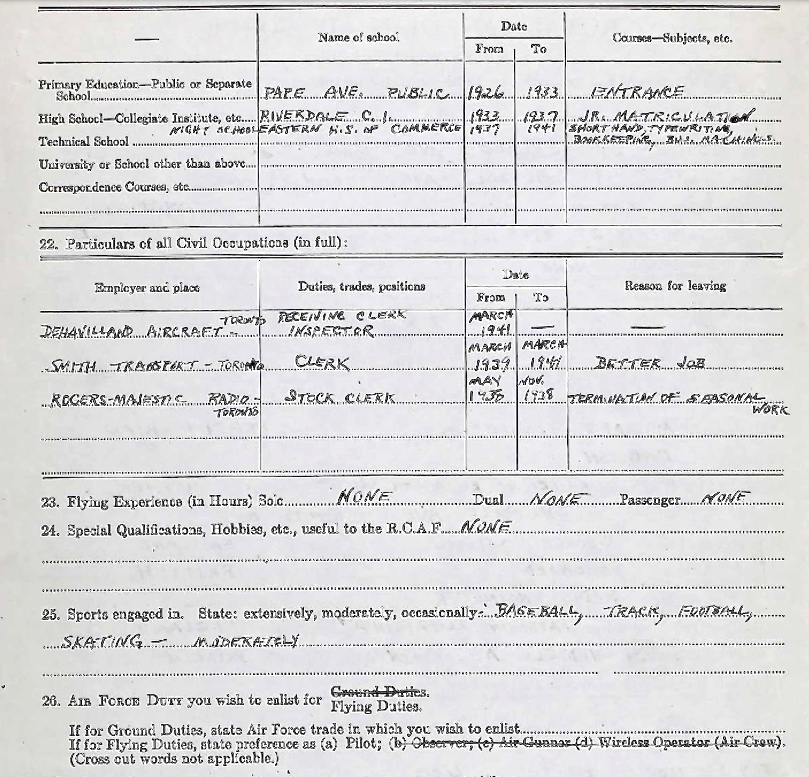 Date
— Name of school. Courses—Subjects, etc.
From To
Primary Education—Public or Separate
School PAPE AVE. PUBLIC 1926 1933 ENTRANCE
High School—Collegiate Institute, etc. RIVERDALE C.I. 1933 1937 JR. MATRICULATION
NIGHT SCHOOL EASTERN H.S. OF COMMERCE 1937 1941 SHORTHAND, TYPEWRITING,
Technical School BOOKKEEPING, BUS. MACHINES.
University or School other than above
Correspondence Courses, etc.
22. Particulars of all Civil Occupations (in full):
Date
Employer and place Duties, trades, positions Reason for leaving
From To
TORONTO RECEIVING CLERK MARCH
DEHAVILLAND AIRCRAFT – INSPECTOR 1941 — —
MARCH MARCH
SMITH TRANSPORT – TORONTO CLERK 1939 1941 BETTER JOB
MAY NOV.
ROGERS-MAJESTIC RADIO – STOCK CLERK 1938 TERMINATION OF SEASONAL
TORONTO WORK
23. Flying Experience (in Hours) Solo NONE Dual NONE Passenger NONE
24. Special Qualifications, Hobbies, etc., useful to the R.C.A.F. NONE
25. Sports engaged in. State: extensively, moderately, occasionally- BASEBALL, TRACK, FOOTBALL,
SKATING — MODERATELY
Ground Duties.
26. AIR FORCE DUTY you wish to enlist for
Flying Duties.
If for Ground Duties, state Air Force trade in which you wish to enlist
If for Flying Duties, state preference as (a) Pilot; (b) Observer; (c) Air Gunner (d) Wireless Operator (Air Crew).
(Cross out words not applicable.)